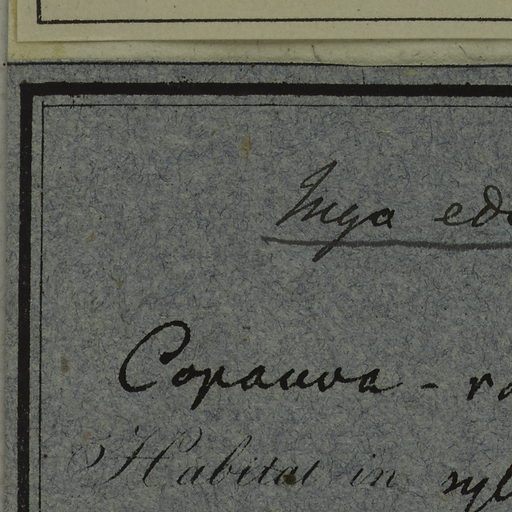 Inga edu
Copauva - ra
Habitat in syl